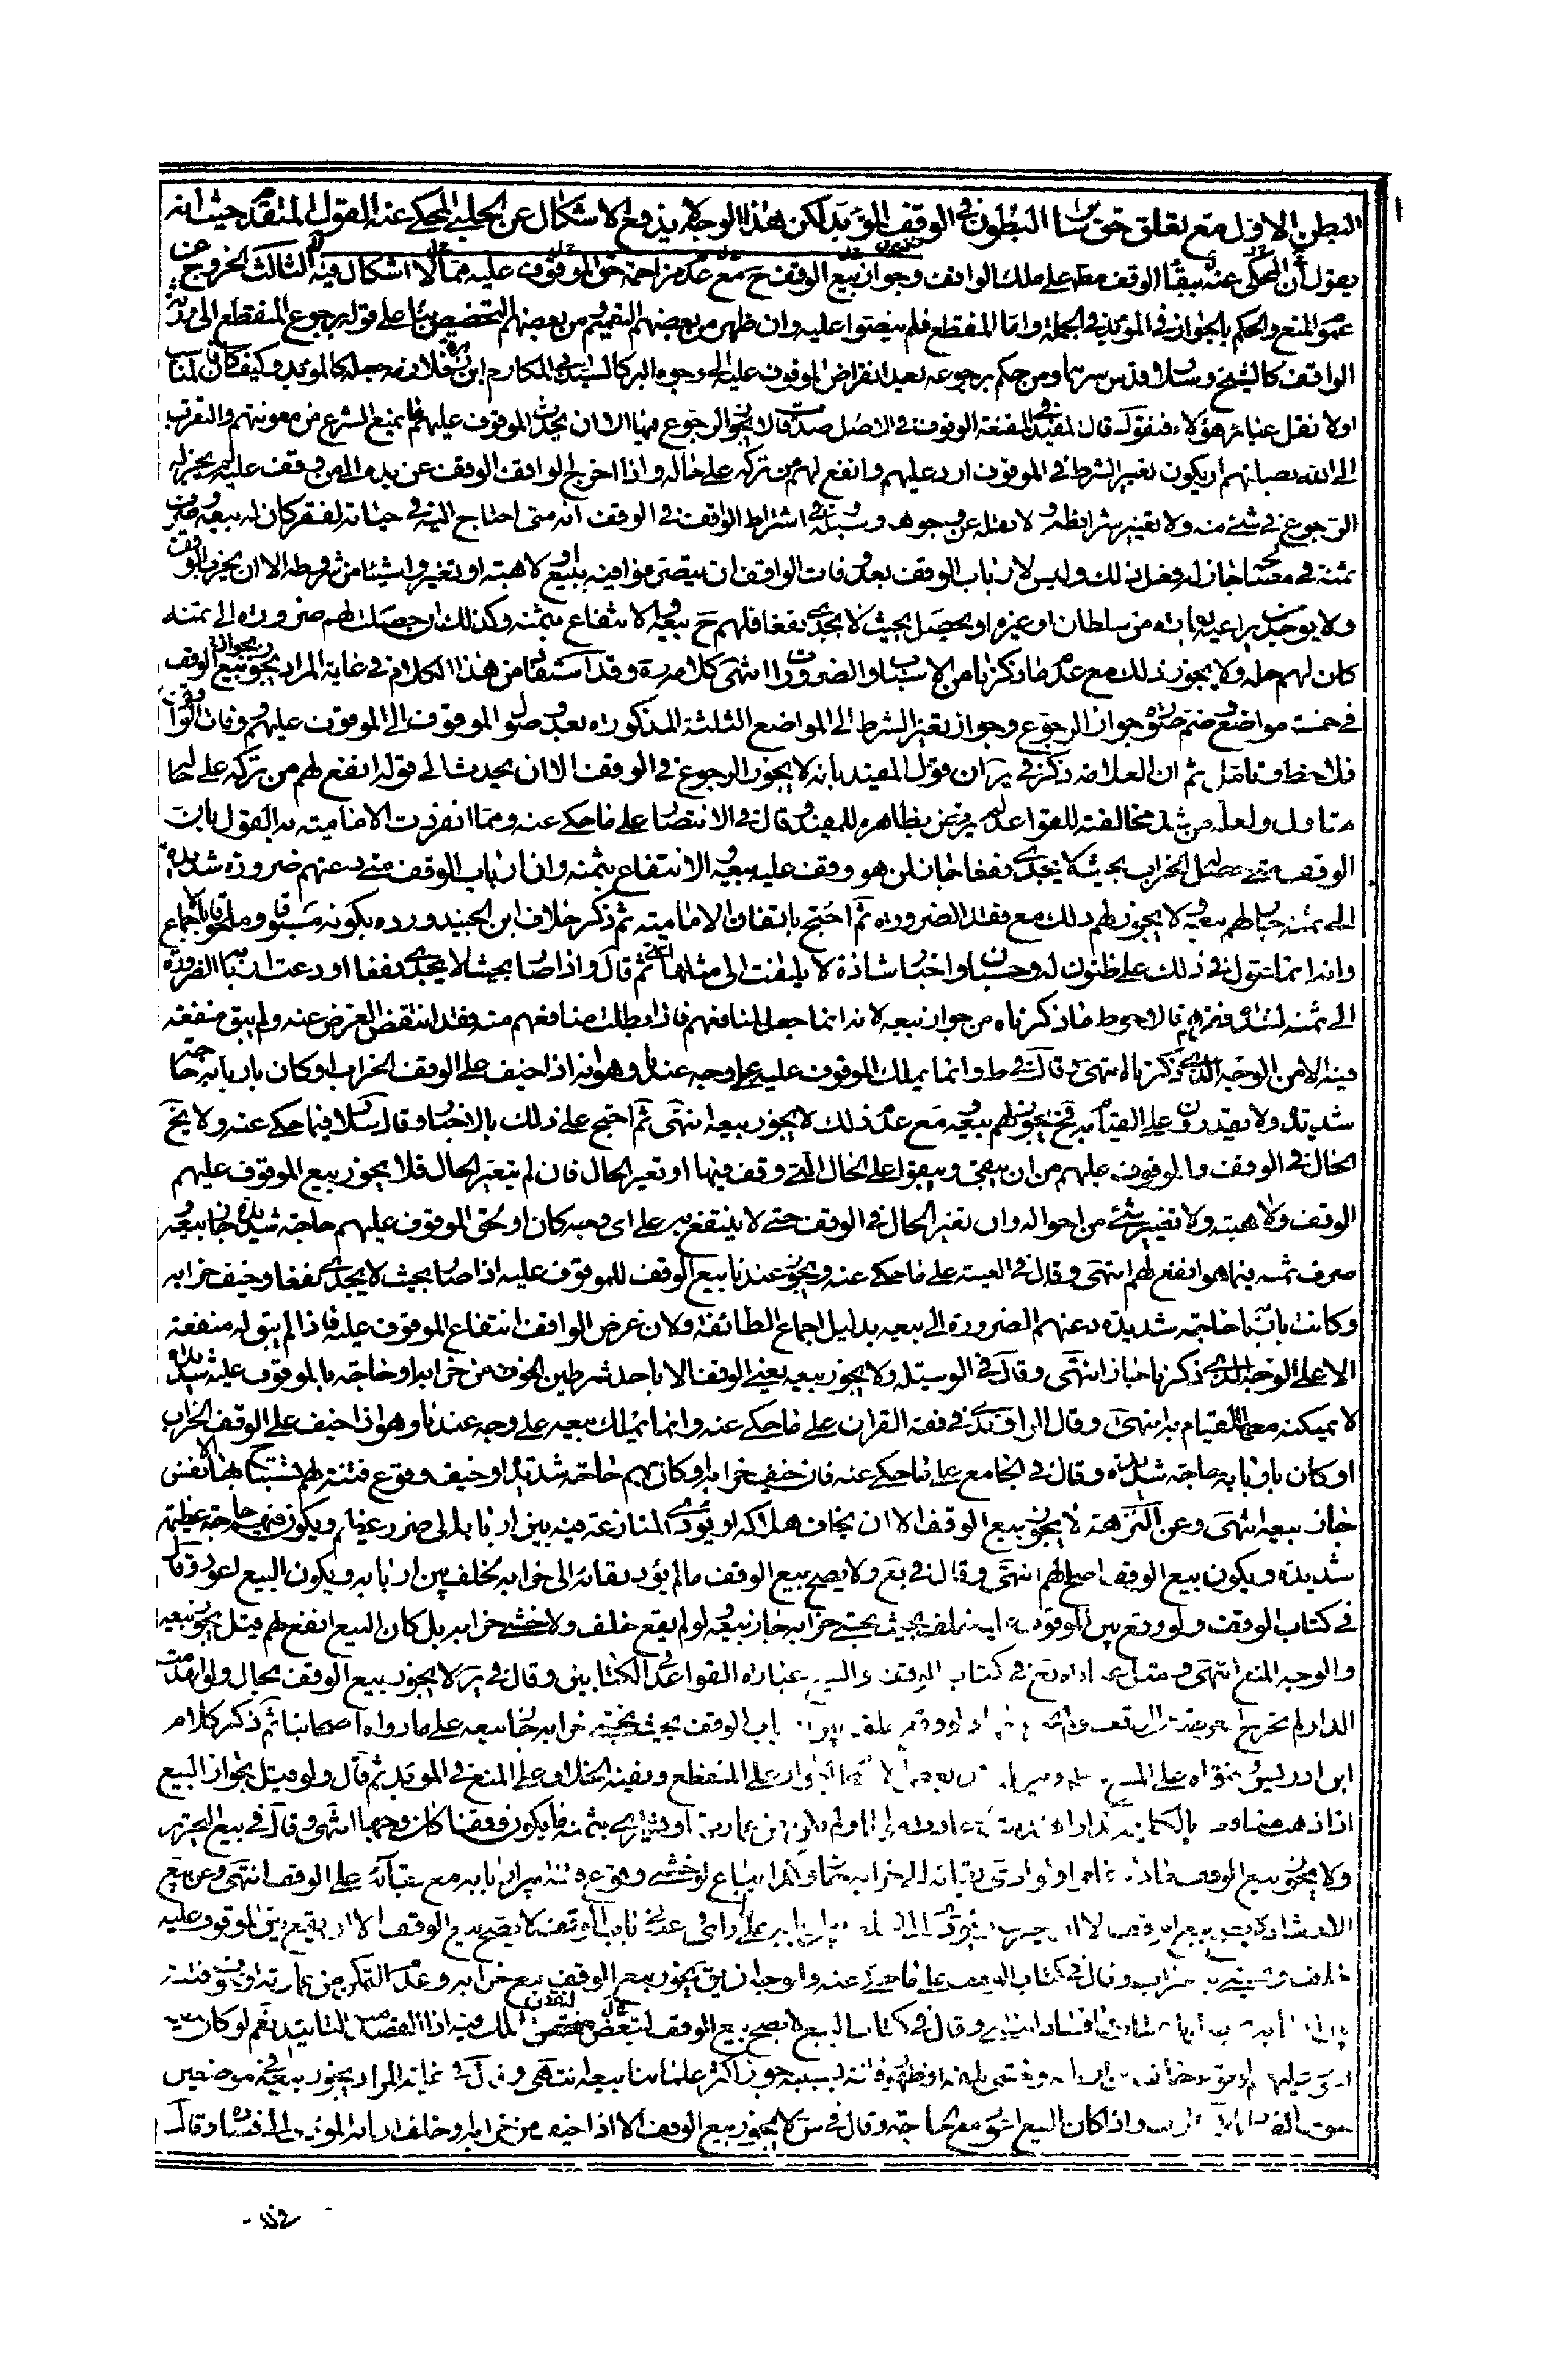 البطن الاول مع تعلق حق سائر البطون فى الوقف المؤبد لكن هذا الوجه لا يدفع الاشكال عن الحلبى المحكى عنه القول المتقدم حيث انه
يقول أن المحكى عنه بقاء الوقف مط على ملك الواقف وجواز بيع الوقف ح مع عدم مزاحمة حق الموقوف عليه مما لا اشكال فيه الثالث الخروج عن
عموم المنع والحكم بالجواز فى المؤبد فى الجملة واما المنقطع فلم ينصوا عليه وان ظهر من بعضهم التعميم ومن بعضهم التخصيص بناء على قوله برجوع المنقطع الى ورثة
الواقف كالشيخ وسلار قدس سرهما ومن حكم برجوعه بعد انقراض الموقوف عليه الى وجوه البر كالسيد ابى المكارم ابن زهرة فلازمه جعله كالمؤبد وكيف كان فالمناسب
اولا نقل عبائر هؤلاء فنقول قال المفيد فى المقنعة الوقوف فى الاصل صدقات لا يجوز الرجوع فيها الا ان يحدث الموقوف عليهم ما يمنع الشرع من معونتهم والتقرب
الى الله بصلتهم او يكون تغيير الشرط فى الموقوف ادر عليهم وانفع لهم من تركه على حاله واذا اخرج الواقف الوقف عن يده الى من وقف عليه لم يجز له
الرجوع فى شئ منه ولا تغيير شرائطه ولا نقله عن وجوهه وسبله ومتى اشترط الواقف فى الوقف انه متى احتاج اليه فى حياته لفقر كان له بيعه وصرف
ثمنه فى مصالحه جاز له فعل ذلك وليس لارباب الوقف بعد وفات الواقف ان يتصرفوا فيه ببيع او لا هبة او تغيروا شيئا من شروطه الا ان يخرب الوقف
ولا يوجد من يراعيه بعمارة من سلطان او غيره او يحصل بحيث لا يجدى نفعا فلهم ح بيعه والانتفاع بثمنه وكذلك ان حصلت لهم ضرورة الى ثمنه
كان لهم حله ولا يجوز ذلك مع عدم ما ذكرناه من الاسباب والضرورات انتهى كلامه ره وقد استفاد من هذا الكلام فى غاية المراد يجوز بيع الوقف
فى خمسة مواضع وضم صورة جواز الرجوع وجواز تغيير الشرط الى المواضع الثلثة المذكورة بعد وصول الموقوف الى الموقوف عليهم ووفات الواقف
فلاحظ وتامل ثم ان العلامة ذكر فى ير ان قول المفيد بانه لا يجوز الرجوع فى الوقف الا ان يحدث الى قوله انفع لهم من تركه على حاله
متاول ولعله من شدة مخالفته للقواعد لم يرض بظاهره للمفيد وقال فى الانتصار على ما حكى عنه ومما انفردت الامامية به القول بان
الوقف متى حصل له الخراب بحيث لا يجدى نفعا جاز لمن هو وقف عليه بيعه والانتفاع بثمنه وان ارباب الوقف متى دعتهم ضرورة شديدة
الى ثمنه جاز لهم بيعه ولا يجوز لهم ذلك مع فقد الضرورة ثم احتج باتفاق الامامية ثم ذكر خلاف ابن الجنيد ورده بكونه مسبوقا وملحوقا بالاجماع
وانه انما عول فى ذلك على ظنون له وحسبان واخبار شاذة لا يلتفت الى مثلها انتهى ثم قال واذا صار بحيث لا يجدى نفعا او دعت اربابه الضرورة
الى ثمنه لشدة فقرهم فالاحوط ما ذكرناه من جواز بيعه لانه انما جعل لمنافعهم فاذا بطلت منافعهم منه فقد انتقض الغرض عنه ولم يبق منفعة
فيه الا من الوجه الذى ذكرناه انتهى وقال فى ط وانما يملك الموقوف عليه على وجه عندنا وهو انه اذا خيف على الوقف الخراب او كان باربابه حاجة
شديدة ولا يقدرون على القيام به فح يجوز لهم بيعه ومع عدم ذلك لا يجوز بيعه انتهى ثم احتج على ذلك بالاخبار وقال سلار فيما حكى عنه ولا يخ
الحال فى الوقف والموقوف عليهم من ان يبقى ويبقوا على الحال التى وقف فيها او تغير الحال فان لم يتغير الحال فلا يجوز بيع الموقوف عليهم
الوقف ولا هبته ولا تغيير شئ من احواله وان تغير الحال فى الوقف حتى لا ينتفع به على اى وجه كان او لحق الموقوف عليهم حاجة شديدة جاز بيعه
صرف ثمنه فيما هو انفع لهم انتهى وقال فى الغنية على ما حكى عنه ويجوز عندنا بيع الوقف للموقوف عليه اذا صار بحيث لا يجدى نفعا وخيف خرابه
وكانت باربابه حاجة شديدة دعتهم الضرورة الى بيعه بدليل اجماع الطائفة ولان غرض الواقف انتفاع الموقوف عليه فاذا لم يبق له منفعة
الا على الوجه الذى ذكرناه جاز انتهى وقال فى الوسيلة ولا يجوز بيعه يعنى الوقف الا باحد شرطين الخوف من خرابه او حاجة بالموقوف عليه شديدة
لا يمكنه معها القيام به انتهى وقال الراوندى فى فقه القران على ما حكى عنه وانما يملك بيعه على وجه عندنا وهو اذا خيف على الوقف الخراب
او كان باربابه حاجة شديدة وقال فى الجامع على ما حكى عنه فان خيف خرابه او كان بهم حاجة شديدة او خيف وقوع فتنة لهم تستباح بها الانفس
جاز بيعه انتهى وعن النزهة لا يجوز بيع الوقف الا ان يخاف هلاكه او يؤدى المنازعة فيه بين اربابه الى ضرر عظيم او يكون فيهم حاجة عظيمة
شديدة ويكون بيع الوقف اصلح لهم انتهى وقال فى يع ولا يصح بيع الوقف ما لم يؤد بقائه الى خرابه لخلف بين اربابه ويكون البيع اعود وقال
فى كتاب الوقف ولو وقع بين الموقوف عليهم خلف بحيث يخشى خرابه جاز بيعه ولو لم يقع خلف ولا خشى خرابه بل كان البيع انفع لهم قيل يجوز بيعه
والوجه المنع انتهى ومثل فى كتاب الوقف والبيع عبارة القواعد فى الكتابين وقال فى ير لا يجوز بيع الوقف بحال ولو انهدمت
الدار لم تخرج العرصة عن الوقف ولم يجز ولو وقع خلف بين ارباب الوقف بحيث يخشى خرابه جاز بيعه على ما رواه اصحابنا ثم ذكر كلام
ابن ادريس وفتواه على المنع على المنقطع ونفيه الخلاف على المنع فى المؤبد ثم قال ولو قيل بجواز البيع
اذا ذهب منافعه بالكلية كدار انهدمت وعادت مواتا ولم يتمكن من عمارته او يشترى بثمنه ما يكون وقفا كان وجها انتهى وقال فى بيع التحرير
ولا يجوز بيع الوقف ما دام عامرا ولو ادى بقائه الى خرابه جاز وكذا يباع لو خشى وقوع فتنة بين اربابه مع بقائه على الوقف انتهى وعن بيع
الارشاد لا يصح بيع الوقف الا ان يخرب على رأى وعنه فى باب الوقف لا يصح بيع الوقف الا ان يقع بين الموقوف عليه
خلف ويخشى به خرابه وقال فى كتاب الوقف على ما حكى عنه والوجه ان يق يجوز بيع الوقف مع خرابه وعدم التمكن من عمارته او خوف فتنة
وقال فى كتاب البيع لا يصح بيع الوقف لنقص الملك فيه اذ القصد التابيد نعم لو كان
جوز اكثر علمائنا بيعه انتهى وقال فى غاية المراد يجوز بيعه فى موضعين
واذا كان البيع مع الحاجة وقال فى س لا يجوز بيع الوقف الا اذا خيف من خرابه او خلف اربابه المؤدى الى فساده وقال